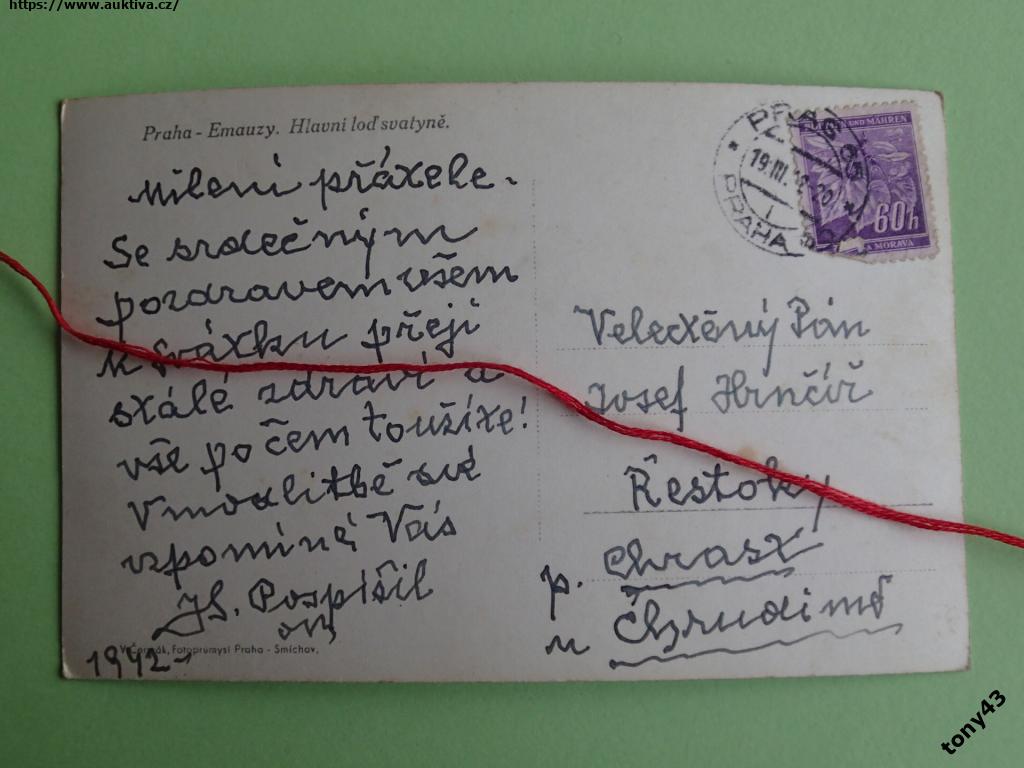 https://www.auktiva.cz/
Praha - Emauzy. Hlavní loď svatyně.
Milení přátelé.
Se srdečným
pozdravem všem
k svátku přeji
stálé zdraví a
vše po čem toužíte!
V modlitbě své
vzpomíná Vás
Pospíšil
1942
V. Čermák, Fotoprůmysl Praha - Smíchov.
PRAG
PRAHA
19.III.
UND MÄHREN
60h
A MORAVA
Veledtěný Pán
Josef Hrnčíř
Řestoky
p. Chrast
u Chrudimě
tony43